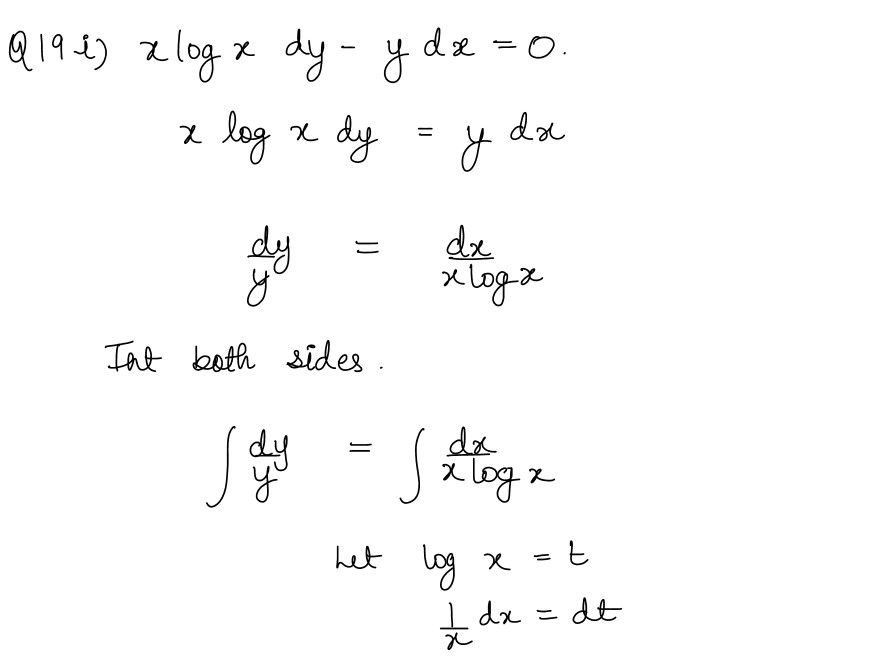 Q19 i) x log x dy - y dx = 0.
x log x dy = y dx
dy/y = dx/(x log x)
Int both sides.
∫ dy/y = ∫ dx/(x log x)
Let log x = t
1/x dx = dt